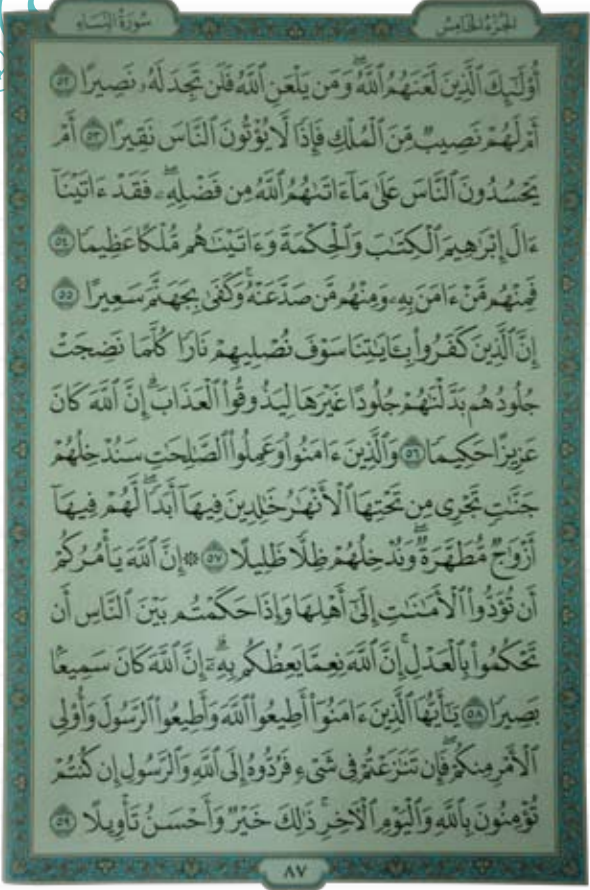 الجُزْءُ الخَامِسُ
سُورَةُ النِّسَاءِ
أُو۟لَٰٓئِكَ ٱلَّذِينَ لَعَنَهُمُ ٱللَّهُۖ وَمَن يَلْعَنِ ٱللَّهُ فَلَن تَجِدَ لَهُۥ نَصِيرًا ٥٢
أَمْ لَهُمْ نَصِيبٌ مِّنَ ٱلْمُلْكِ فَإِذًا لَّا يُؤْتُونَ ٱلنَّاسَ نَقِيرًا ٥٣ أَمْ
يَحْسُدُونَ ٱلنَّاسَ عَلَىٰ مَآ ءَاتَىٰهُمُ ٱللَّهُ مِن فَضْلِهِۦۖ فَقَدْ ءَاتَيْنَآ
ءَالَ إِبْرَٰهِيمَ ٱلْكِتَٰبَ وَٱلْحِكْمَةَ وَءَاتَيْنَٰهُم مُّلْكًا عَظِيمًا ٥٤
فَمِنْهُم مَّنْ ءَامَنَ بِهِۦ وَمِنْهُم مَّن صَدَّ عَنْهُۚ وَكَفَىٰ بِجَهَنَّمَ سَعِيرًا ٥٥
إِنَّ ٱلَّذِينَ كَفَرُوا۟ بِـَٔايَٰتِنَا سَوْفَ نُصْلِيهِمْ نَارًا كُلَّمَا نَضِجَتْ
جُلُودُهُم بَدَّلْنَٰهُمْ جُلُودًا غَيْرَهَا لِيَذُوقُوا۟ ٱلْعَذَابَۗ إِنَّ ٱللَّهَ كَانَ
عَزِيزًا حَكِيمًا ٥٦ وَٱلَّذِينَ ءَامَنُوا۟ وَعَمِلُوا۟ ٱلصَّٰلِحَٰتِ سَنُدْخِلُهُمْ
جَنَّٰتٍ تَجْرِى مِن تَحْتِهَا ٱلْأَنْهَٰرُ خَٰلِدِينَ فِيهَآ أَبَدًاۖ لَّهُمْ فِيهَآ
أَزْوَٰجٌ مُّطَهَّرَةٌۖ وَنُدْخِلُهُمْ ظِلًّا ظَلِيلًا ٥٧ ۞ إِنَّ ٱللَّهَ يَأْمُرُكُمْ
أَن تُؤَدُّوا۟ ٱلْأَمَٰنَٰتِ إِلَىٰٓ أَهْلِهَا وَإِذَا حَكَمْتُم بَيْنَ ٱلنَّاسِ أَن
تَحْكُمُوا۟ بِٱلْعَدْلِۚ إِنَّ ٱللَّهَ نِعِمَّا يَعِظُكُم بِهِۦٓۗ إِنَّ ٱللَّهَ كَانَ سَمِيعًۢا
بَصِيرًا ٥٨ يَٰٓأَيُّهَا ٱلَّذِينَ ءَامَنُوٓا۟ أَطِيعُوا۟ ٱللَّهَ وَأَطِيعُوا۟ ٱلرَّسُولَ وَأُو۟لِى
ٱلْأَمْرِ مِنكُمْۖ فَإِن تَنَٰزَعْتُمْ فِى شَىْءٍ فَرُدُّوهُ إِلَى ٱللَّهِ وَٱلرَّسُولِ إِن كُنتُمْ
تُؤْمِنُونَ بِٱللَّهِ وَٱلْيَوْمِ ٱلْءَاخِرِۚ ذَٰلِكَ خَيْرٌ وَأَحْسَنُ تَأْوِيلًا ٥٩
٨٧